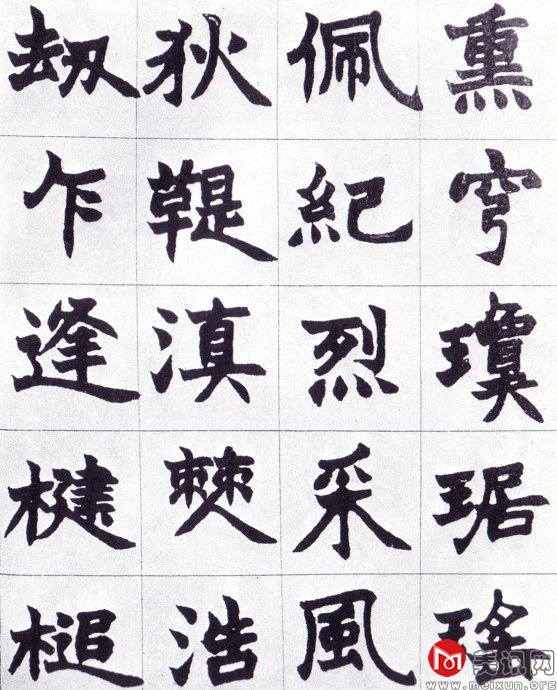 熏穹瓊琚瑤
佩紀烈采風
狄鞮滇僰浩
刼乍逢楗槌
美讯网
www.meixun.org